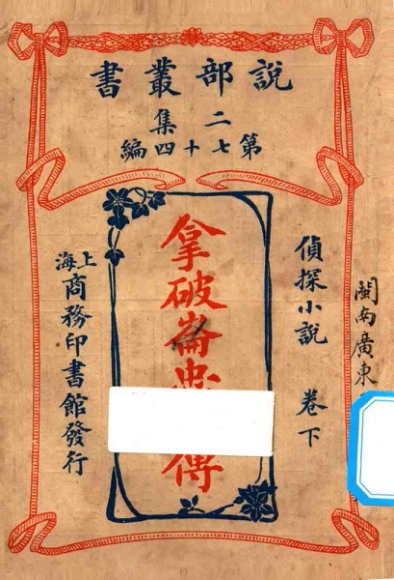 說部叢書
第二集七十四編
閩南廣東
偵探小說 卷下
拿破崙忠傳
上海商務印書館發行